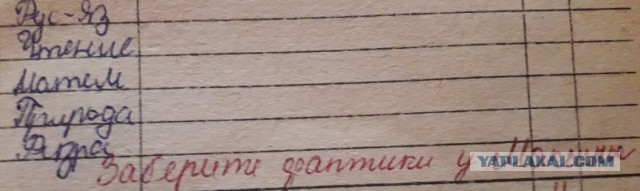 Рус-яз
Чтение
Матем
Природа
Физра
Заберите фантики у
YAPLAKAL.COM